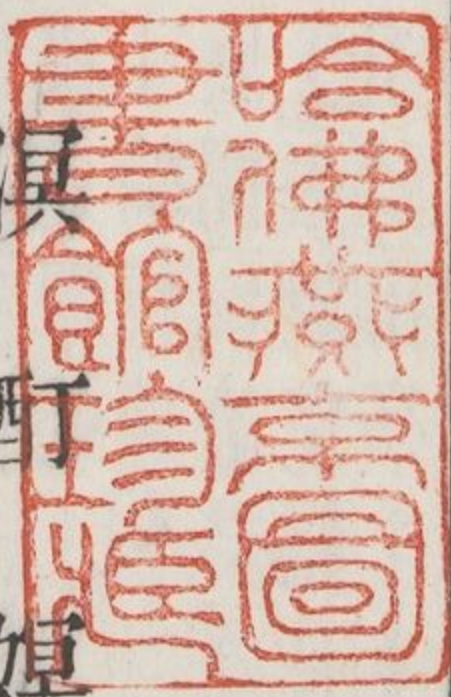 哈佛燕京圖
書館珍藏
溟酊